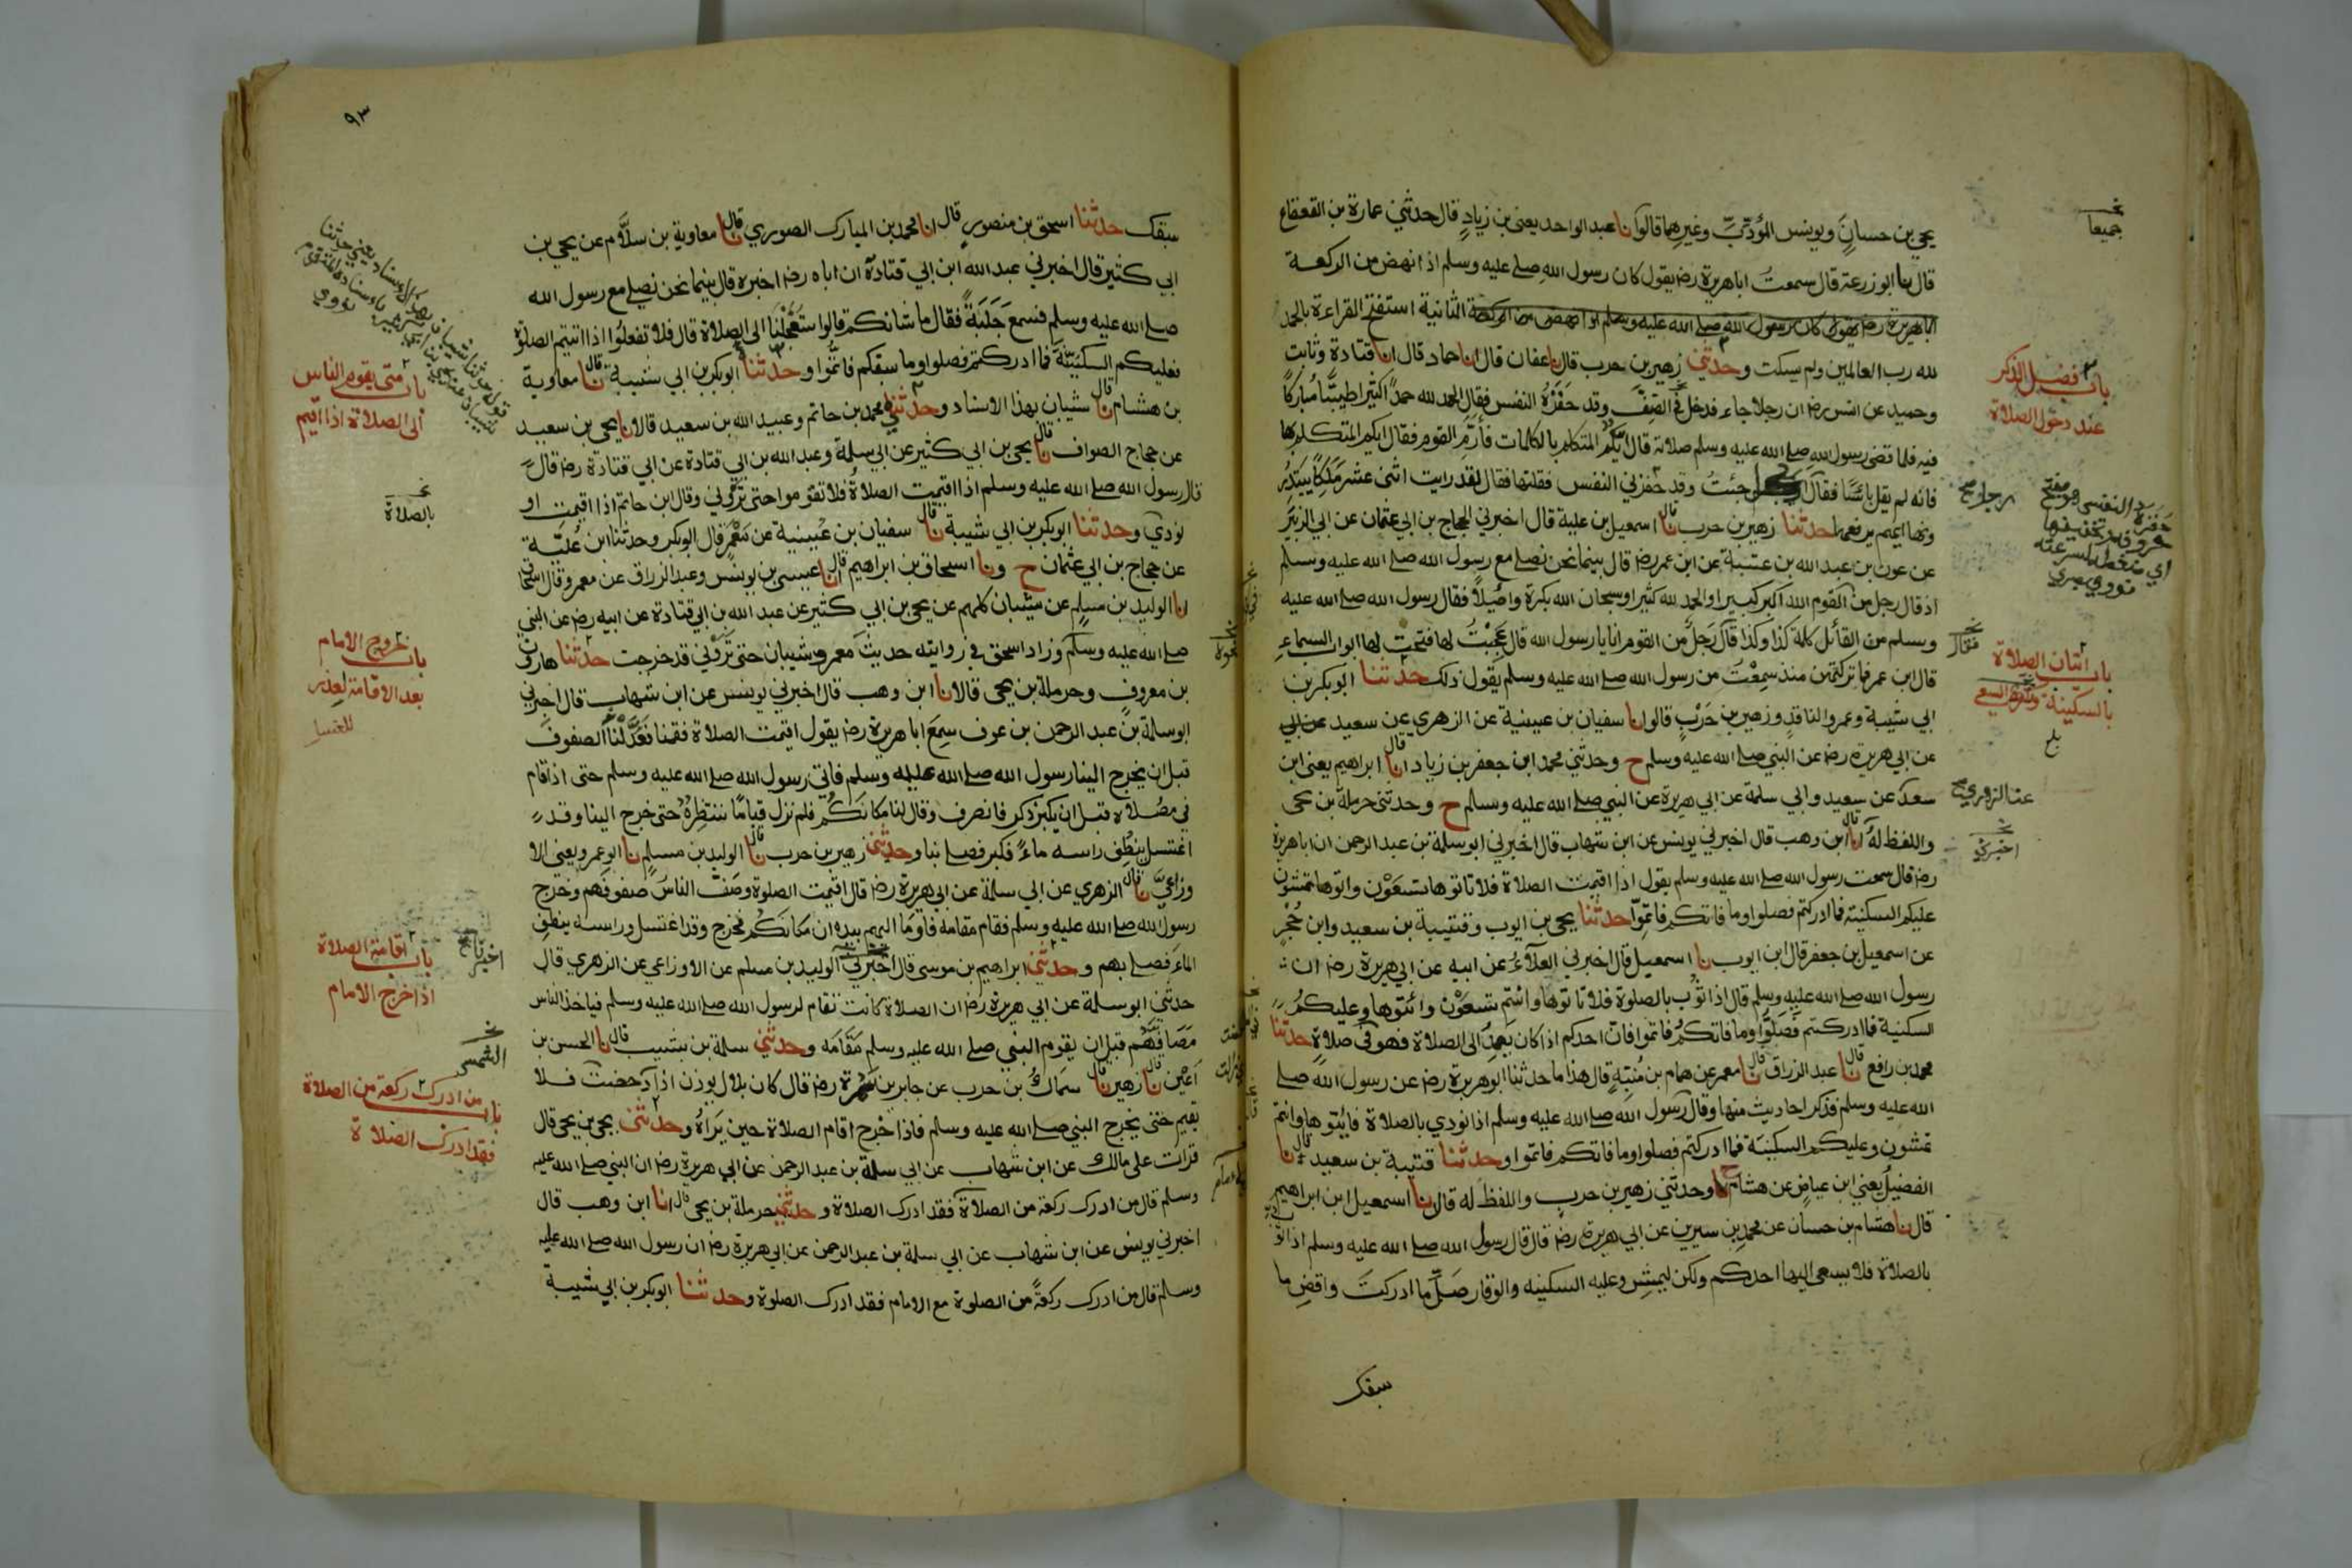 جميعا
يحيى بن حسان ويونس المؤدب وغيرهما قالوا نا عبد الواحد يعنى بن زياد قال حدثني عمارة بن القعقاع
قال نا ابو زرعة قال سمعت ابا هريرة رض يقول كان رسول الله صلے الله عليه وسلم اذا نهض من الركعة
ابا هريرة رض يقول كان رسول الله صلے الله عليه وسلم اذا نهض من الركعة الثانية استفتح القراءة بالحمد
لله رب العالمين ولم يسكت وحدثني زهير بن حرب قال نا عفان قال انا حماد قال انا قتادة وثابت
باب فضل الذكر
عند دخول الصلاة
وحميد عن انس رض ان رجلا جاء فدخل في الصف وقد حفزه النفس فقال الحمد لله حمدا كثيرا طيبا مباركا
فيه فلما قضى رسول الله صلے الله عليه وسلم صلاته قال ايكم المتكلم بالكلمات فأرم القوم فقال ايكم المتكلم بها
فانه لم يقل بائسا فقال جئت وقد حفزني النفس فقلتها فقال لقد رايت اثنى عشر ملكا يبتدر
رجل صح
ونها ايهم يرفعها حدثنا زهير بن حرب قال نا اسمعيل بن علية قال اخبرني الحجاج بن ابي عثمان عن ابي الزبير
عن عون بن عبد الله بن عتبة عن ابن عمر رض قال بينما نحن نصلي مع رسول الله صلے الله عليه وسلم
اذ قال رجل من القوم الله اكبر كبيرا والحمد لله كثيرا وسبحان الله بكرة واصيلا فقال رسول الله صلے الله عليه
وسلم من القائل كلمة كذا وكذا قال رجل من القوم انا يا رسول الله قال عجبت لها فتحت لها ابواب السماء
باب اتيان الصلاة
بالسكينة
قال ابن عمر فما تركتهن منذ سمعت من رسول الله صلے الله عليه وسلم يقول ذلك حدثنا ابو بكر بن
ابي شيبة وعمرو الناقد وزهير بن حرب قالوا نا سفيان بن عيينة عن الزهري عن سعيد
عن ابي هريرة رض عن النبي صلے الله عليه وسلم ح وحدثني محمد ابن جعفر بن زياد قال انا ابراهيم يعنى ابن
سعد عن سعيد وابي سلمة عن ابي هريرة عن النبي صلے الله عليه وسلم ح وحدثني حرملة بن يحيى
عن الزهري صح
واللفظ له قال انا ابن وهب قال اخبرني يونس عن ابن شهاب قال اخبرني ابو سلمة بن عبد الرحمن ان ابا هريرة
رض قال سمعت رسول الله صلے الله عليه وسلم يقول اذا اقيمت الصلاة فلا تاتوها تسعون واتوها تمشون
عليكم السكينة فما ادركتم فصلوا وما فاتكم فاتموا حدثنا يحيى بن ايوب وقتيبة بن سعيد وابن حجر
عن اسمعيل بن جعفر قال ابن ايوب نا اسمعيل قال اخبرني العلاء عن ابيه عن ابي هريرة رض ان
رسول الله صلے الله عليه وسلم قال اذا ثوب بالصلوة فلا تاتوها وانتم تسعون وائتوها وعليكم
السكينة فما ادركتم فصلوا وما فاتكم فاتموا فان احدكم اذا كان يعمد الى الصلاة فهو في صلاة حدثنا
محمد بن رافع قال نا عبد الرزاق قال نا معمر عن همام بن منبه قال هذا ما حدثنا ابو هريرة رض عن رسول الله صلے
الله عليه وسلم فذكر احاديث منها وقال رسول الله صلے الله عليه وسلم اذا نودي بالصلاة فايتوها وانتم
تمشون وعليكم السكينة فما ادركتم فصلوا وما فاتكم فاتموا وحدثنا قتيبة بن سعيد قال نا
الفضيل يعني ابن عياض عن هشام ح وحدثني زهير بن حرب واللفظ له قال نا اسمعيل ابن ابراهيم
قال نا هشام بن حسان عن محمد بن سيرين عن ابي هريرة رض قال قال رسول الله صلے الله عليه وسلم اذا ثو
بالصلاة فلا يسعى اليها احدكم ولكن ليمش وعليه السكينه والوقار صل ما ادركت واقض ما
سبقك
٩٣
سبقك حدثنا اسحق بن منصور قال انا محمد بن المبارك الصوري قال نا معاوية بن سلام عن يحيى بن
ابي كثير قال اخبرني عبد الله ابن ابي قتادة ان اباه رض اخبره قال بينما نحن نصلي مع رسول الله
صلے الله عليه وسلم فسمع جلبة فقال ما شانكم قالوا استعجلنا الى الصلاة قال فلا تفعلوا اذا اتيتم الصلوة
فعليكم السكينة فما ادركتم فصلوا وما سبقكم فاتموا وحدثنا ابو بكر بن ابي شيبة قال نا معاوية
باب متى يقوم الناس
الى الصلاة اذا اقيم
بن هشام قال نا شيبان بهذا الاسناد وحدثني محمد بن حاتم وعبيد الله بن سعيد قالا نا يحيى بن سعيد
عن حجاج الصواف قال نا يحيى بن ابي كثير عن ابي سلمة وعبد الله بن ابي قتادة عن ابي قتادة رض قال
قال رسول الله صلے الله عليه وسلم اذا اقيمت الصلاة فلا تقوموا حتى تروني وقال ابن حاتم اذا اقيمت او
بالصلاة
نودي وحدثنا ابو بكر بن ابي شيبة قال نا سفيان بن عيينة عن معمر قال ابو بكر وحدثنا ابن علية
عن حجاج بن ابي عثمان ح ونا اسحاق بن ابراهيم قال انا عيسى بن يونس وعبد الرزاق عن معمر وقال اسحاق
انا الوليد بن مسلم عن شيبان كلهم عن يحيى بن ابي كثير عن عبد الله بن ابي قتادة عن ابيه رض عن النبي
صلے الله عليه وسلم وزاد اسحق في روايته حديث معمر وشيبان حتى تروني قد خرجت حدثنا هارون
باب خروج الامام
بعد الاقامة لعذر
للغسل
بن معروف وحرملة بن يحيى قالا نا ابن وهب قال اخبرني يونس عن ابن شهاب قال اخبرني
ابو سلمة بن عبد الرحمن بن عوف سمع ابا هريرة رض يقول اقيمت الصلاة فقمنا فعدلنا الصفوف
قبل ان يخرج الينا رسول الله صلے الله عليه وسلم فاتى رسول الله صلے الله عليه وسلم حتى اذا قام
في مصلاه قبل ان يكبر ذكر فانصرف وقال لنا مكانكم فلم نزل قياما ننتظره حتى خرج الينا وقد
اغتسل ينطف راسه ماء فكبر فصلى بنا وحدثني زهير بن حرب قال نا الوليد بن مسلم نا ابو عمرو يعنى الا
وزاعي قال نا الزهري عن ابي سلمة عن ابي هريرة رض قال اقيمت الصلوة وصف الناس صفوفهم وخرج
رسول الله صلے الله عليه وسلم فقام مقامه فاوما اليهم بيده ان مكانكم فخرج وقد اغتسل وراسه ينطف
الماء فصلى بهم وحدثني ابراهيم بن موسى قال اخبرني الوليد بن مسلم عن الاوزاعي عن الزهري قال
باب اقامة الصلاة
اذا خرج الامام
حدثني ابو سلمة عن ابي هريرة رض ان الصلاة كانت تقام لرسول الله صلے الله عليه وسلم فياخذ الناس
مصافهم قبل ان يقوم النبي صلے الله عليه وسلم مقامه وحدثني سلمة بن شبيب قال نا الحسن بن
اعين قال نا زهير قال نا سماك بن حرب عن جابر بن سمرة رض قال كان بلال يوذن اذا دحضت فلا
باب من ادرك ركعة من الصلاة
فقد ادرك الصلاة
يقيم حتى يخرج النبي صلے الله عليه وسلم فاذا خرج اقام الصلاة حين يراه وحدثني يحيى بن يحيى قال
قرات على مالك عن ابن شهاب عن ابي سلمة بن عبد الرحمن عن ابي هريرة رض ان النبي صلے الله عليه
وسلم قال من ادرك ركعة من الصلاة فقد ادرك الصلاة وحدثني حرملة بن يحيى قال انا ابن وهب قال
اخبرني يونس عن ابن شهاب عن ابي سلمة بن عبد الرحمن عن ابي هريرة رض ان رسول الله صلے الله عليه
وسلم قال من ادرك ركعة من الصلوة مع الامام فقد ادرك الصلوة وحدثنا ابو بكر بن ابي شيبة